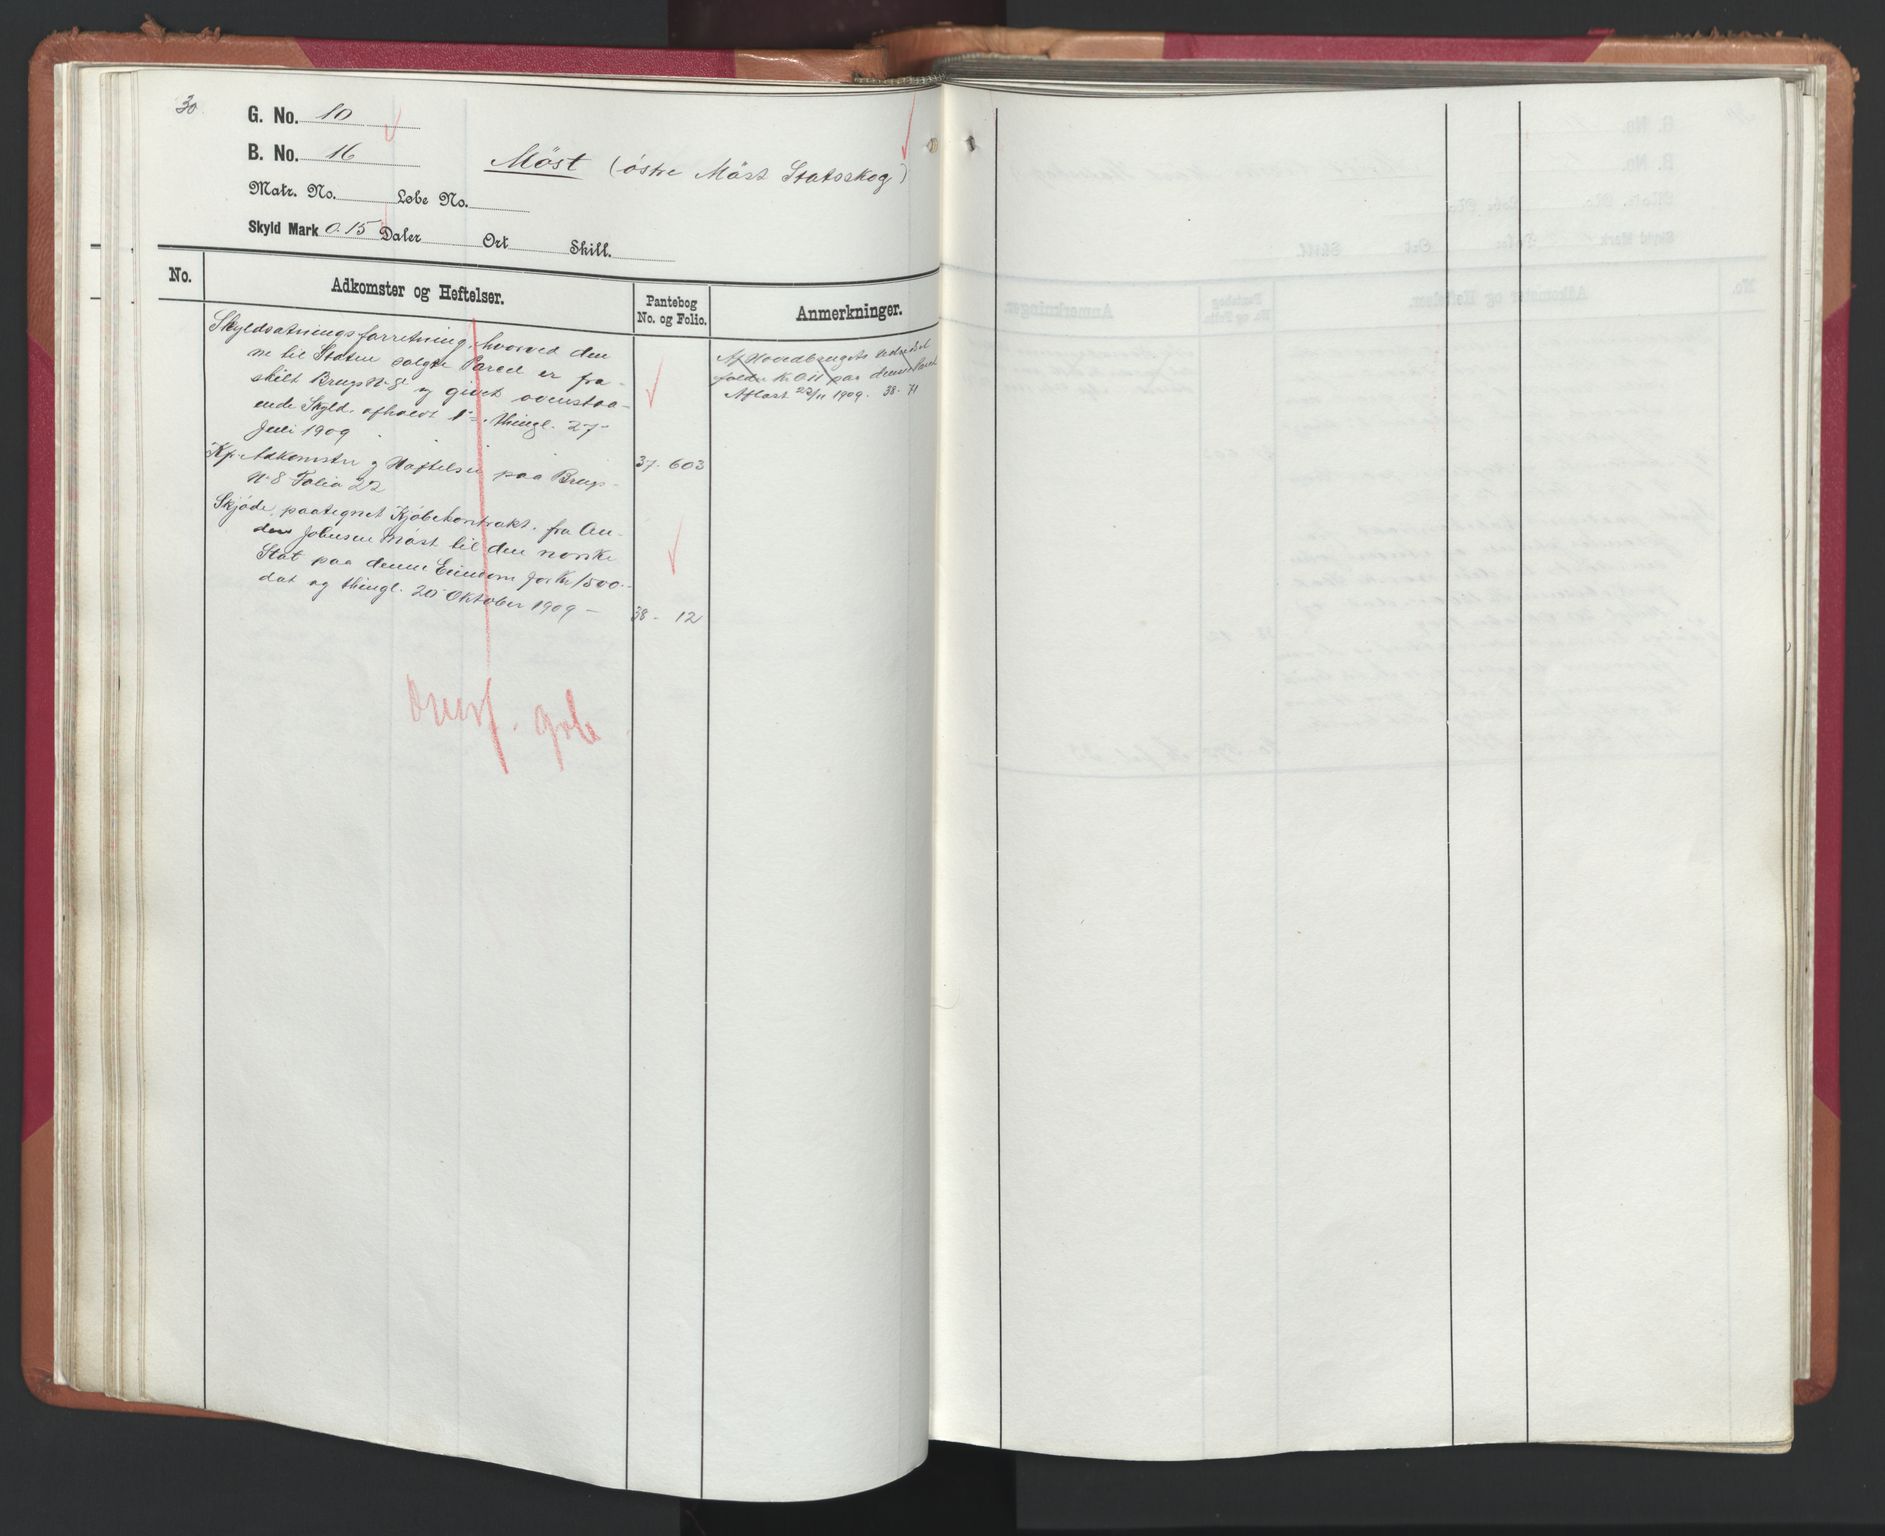 30.
G. No. 10
B. No. 16
Möst (östre Möst Statsskog)
Matr. No. Løbe No.
Skyld Mark 0.15 Daler Ort Skill.
No. Adkomster og Heftelser. Pantebog No. og Folio. Anmerkninger.
Skyldsætningsforretning, hvorved den
ne til Staten solgte Parcel er fra-
skilt Brugs No 8 og givet ovenstaa-
ende Skyld. afholdt 1ste, thingl. 27-
Juli 1909
37. 603
Af Hovedbrugets
falder Kr. 0.11 paa denne Parcel
Aflæst 22/11 1909. 38. 71
Kfr. Adkomster og Hæftelser paa Brugs-
No 8 Folio 22
Skjöde, paategnet Kjöbekontrakt. fra An-
ders Johnsen Möst til den norske
Stat paa denne Eiendom for Kr 1500.-
dat og thingl. 20 Oktober 1909 -
38 - 12
Overf. grb.